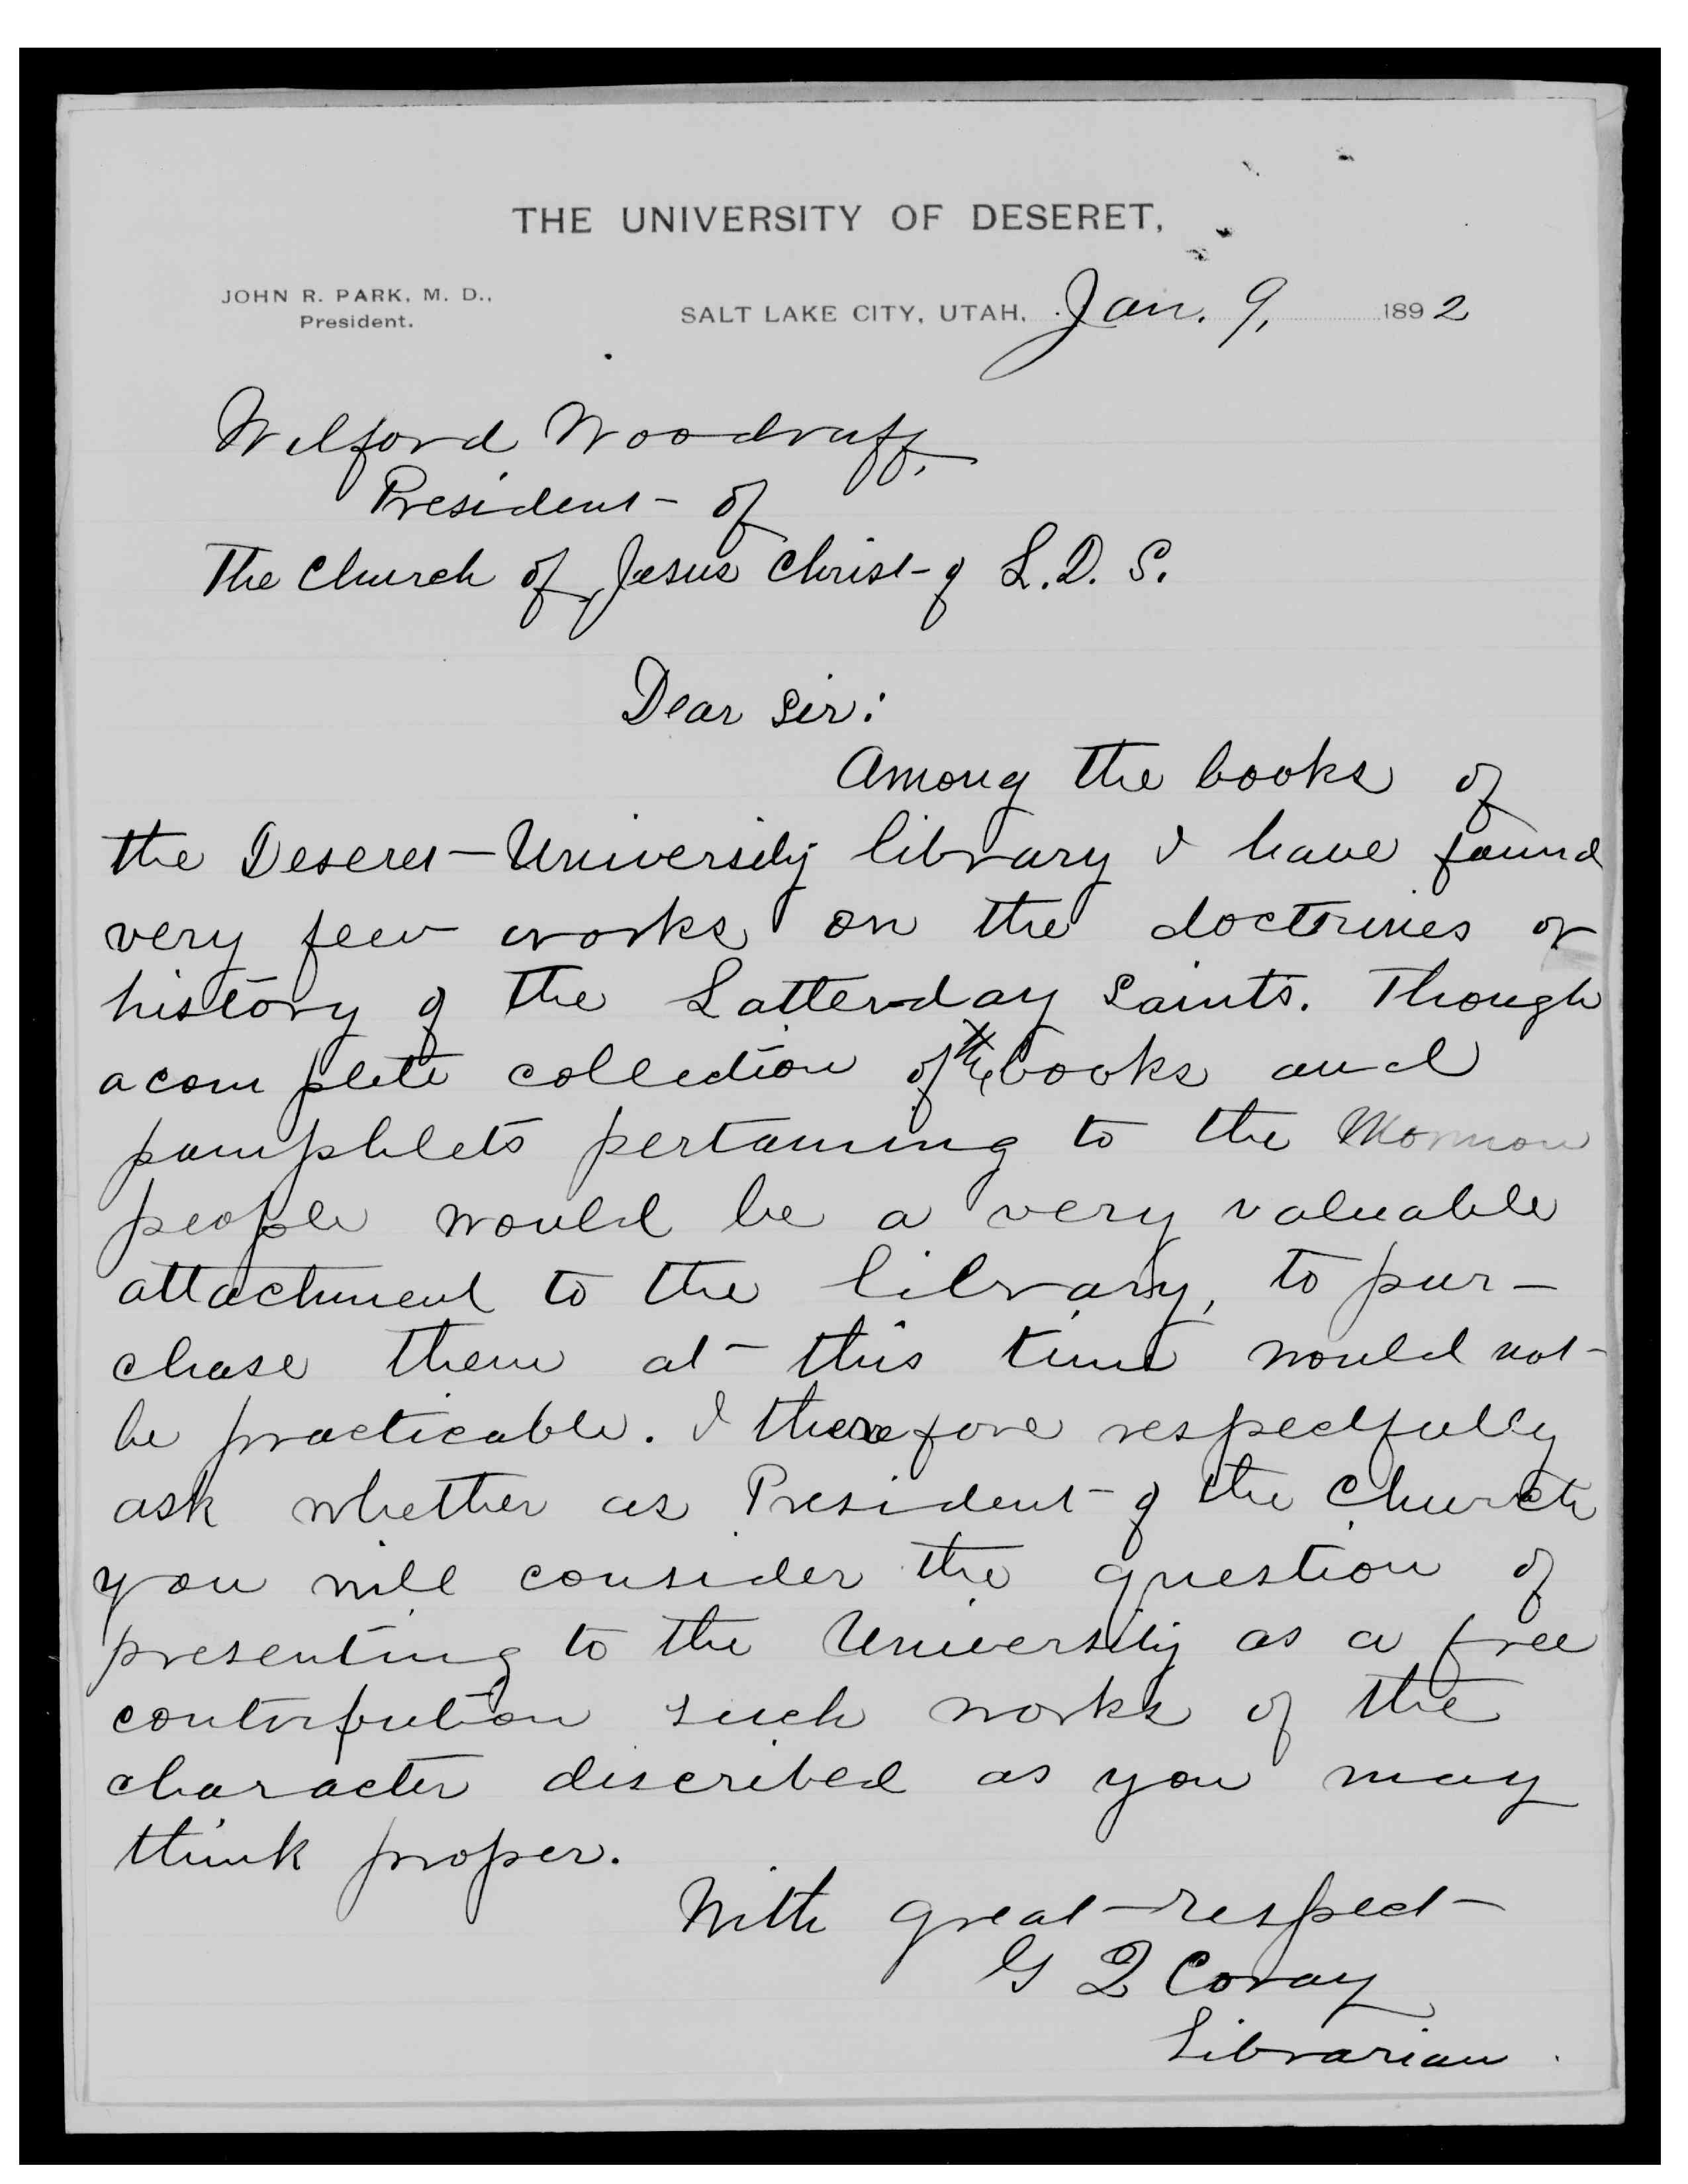 THE UNIVERSITY OF DESERET,
JOHN R. PARK, M. D.,
President.
SALT LAKE CITY, UTAH, Jan. 9, 1892
Wilford Woodruff,
President of
The Church of Jesus Christ of L.D.S.
Dear Sir:
Among the books of
the Deseret University library I have found
very few works on the doctrines or
history of the Latter-day Saints. Though
a complete collection of the books and
pamphlets pertaining to the Mormon
people would be a very valuable
attachment to the library, to pur-
chase them at this time would not
be practicable. I therefore respectfully
ask whether as President of the Church
you will consider the question of
presenting to the University as a free
contribution such works of the
character discribed as you may
think proper.
With great respect
G Q Coray
Librarian.